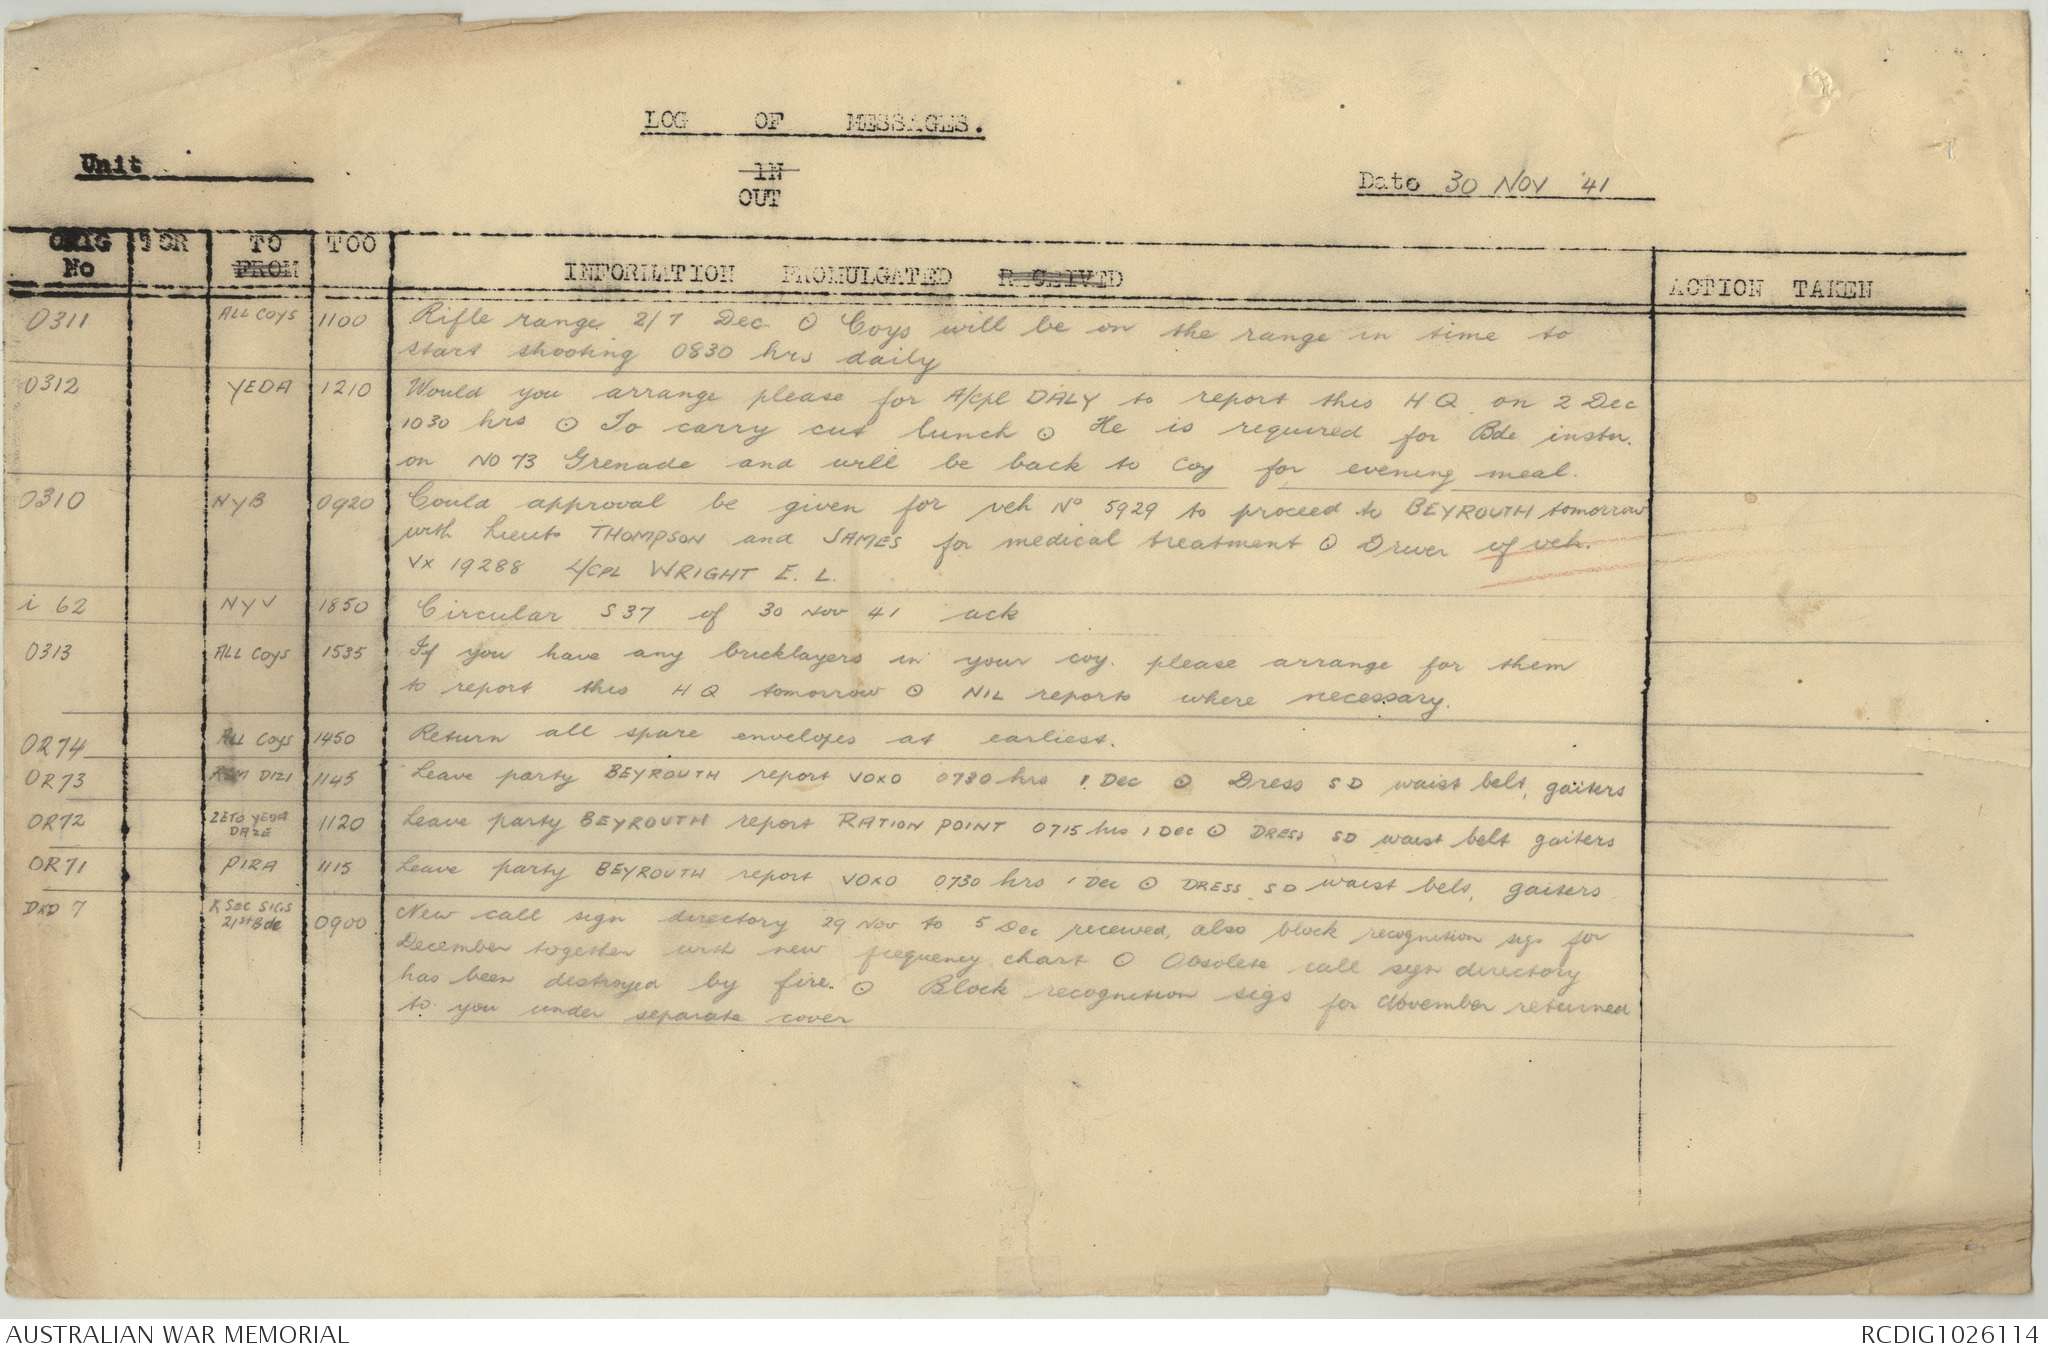 LOG OF MESSAGES.
Unit
IN
OUT
Date 30 NOV '41
ORIG No TOR TO FROM TOO INFORMATION PROMULGATED RECEIVED ACTION TAKEN
0311 ALL COYS 1100 Rifle range 2/7 Dec ⊙ Coys will be on the range in time to
start shooting 0830 hrs daily
0312 YEDA 1210 Would you arrange please for A/Cpl DALY to report this HQ on 2 Dec
1030 hrs ⊙ To carry cut lunch ⊙ He is required for Bde instn.
on NO 73 Grenade and will be back to Coy for evening meal.
0310 NYB 0920 Could approval be given for veh Nº 5929 to proceed to BEYROUTH tomorrow
with Lieuts THOMPSON and JAMES for medical treatment ⊙ Driver of veh.
VX 19288 L/CPL WRIGHT E. L.
i 62 NYV 1850 Circular S37 of 30 Nov 41 ack
0313 ALL Coys 1535 If you have any bricklayers in your coy. please arrange for them
to report this HQ tomorrow ⊙ NIL reports where necessary.
OR74 ALL Coys 1450 Return all spare envelopes at earliest.
OR73 RSM DIZI 1145 Leave party BEYROUTH report VOXO 0730 hrs 1 Dec ⊙ Dress SD waist belt, gaiters
OR72 ZETO YEDA 1120 Leave party BEYROUTH report RATION POINT 0715 hrs 1 Dec ⊙ DRESS SD waist belt gaiters
DAZE
OR71 PIRA 1115 Leave party BEYROUTH report VOXO 0730 hrs 1 Dec ⊙ DRESS SD waist belt, gaiters
DXD 7 K SEC SIGS 21st Bde 0900 New call sign directory 29 Nov to 5 Dec received, also block recognition sigs for
December together with new frequency chart ⊙ Obsolete call sign directory
has been destroyed by fire. ⊙ Block recognition sigs for November returned
to you under separate cover
AUSTRALIAN WAR MEMORIAL RCDIG1026114